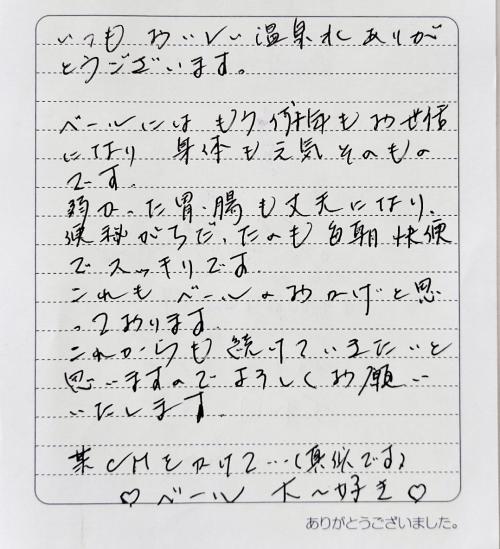 いつもおいしい温泉水ありが
とうございます。
ベールにはもう何年もお世話
になり 身体も元気そのもの
です。
弱かった胃・腸も丈夫になり、
便秘がちだったのも毎朝快便
でスッキリです。
これもベールのおかげと思
っております。
これからも続けていきたいと
思いますのでよろしくお願い
いたします。
某CMをかけて…(真似です)
♡ ベール 大〜好き ♡
ありがとうございました。